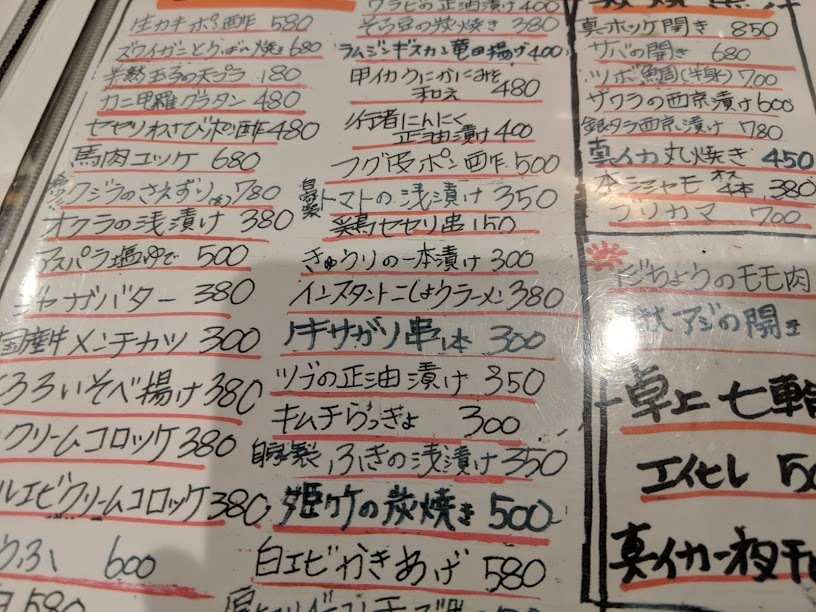 生カキポン酢 580
ズワイガニとりばの焼き 680
半熟玉子の天プラ 180
カニ甲羅グラタン 480
セセリわさびポン酢 480
馬肉ユッケ 680
クジラのさえずり 780
オクラの浅漬け 380
アスパラ塩ゆで 500
ジャガバター 380
国産牛メンチカツ 300
ろろいそべ揚げ 380
クリームコロッケ 380
ルエビクリームコロッケ 380
うふ 600
580
ワラビの正油漬け 400
そら豆の炭焼き 380
ラムジンギスカン竜田揚げ 400
甲イカ
かにみそ
和え 480
行者にんにく
正油漬け 400
フグ皮ポン酢 500
自家製トマトの浅漬け 350
鶏セセリ串 150
きゅうりの一本漬け 300
インスタントこしょうラーメン 380
サガリ串1本 300
ツブの正油漬け 350
キムチらっきょ 300
自家製ふきの浅漬け 350
姫竹の炭焼き 500
白エビかきあげ 580
真ホッケ開き 850
サバの開き 680
ツボ鯛(半身) 700
ザワラの西京漬け 600
銀タラ西京漬け 780
真イカ丸焼き 450
本シシャモ オス 4本 380
ブリカマ 700
だちょうのモモ肉
アジの開き
卓上七輪
エイヒレ 50
真イカ一夜干し